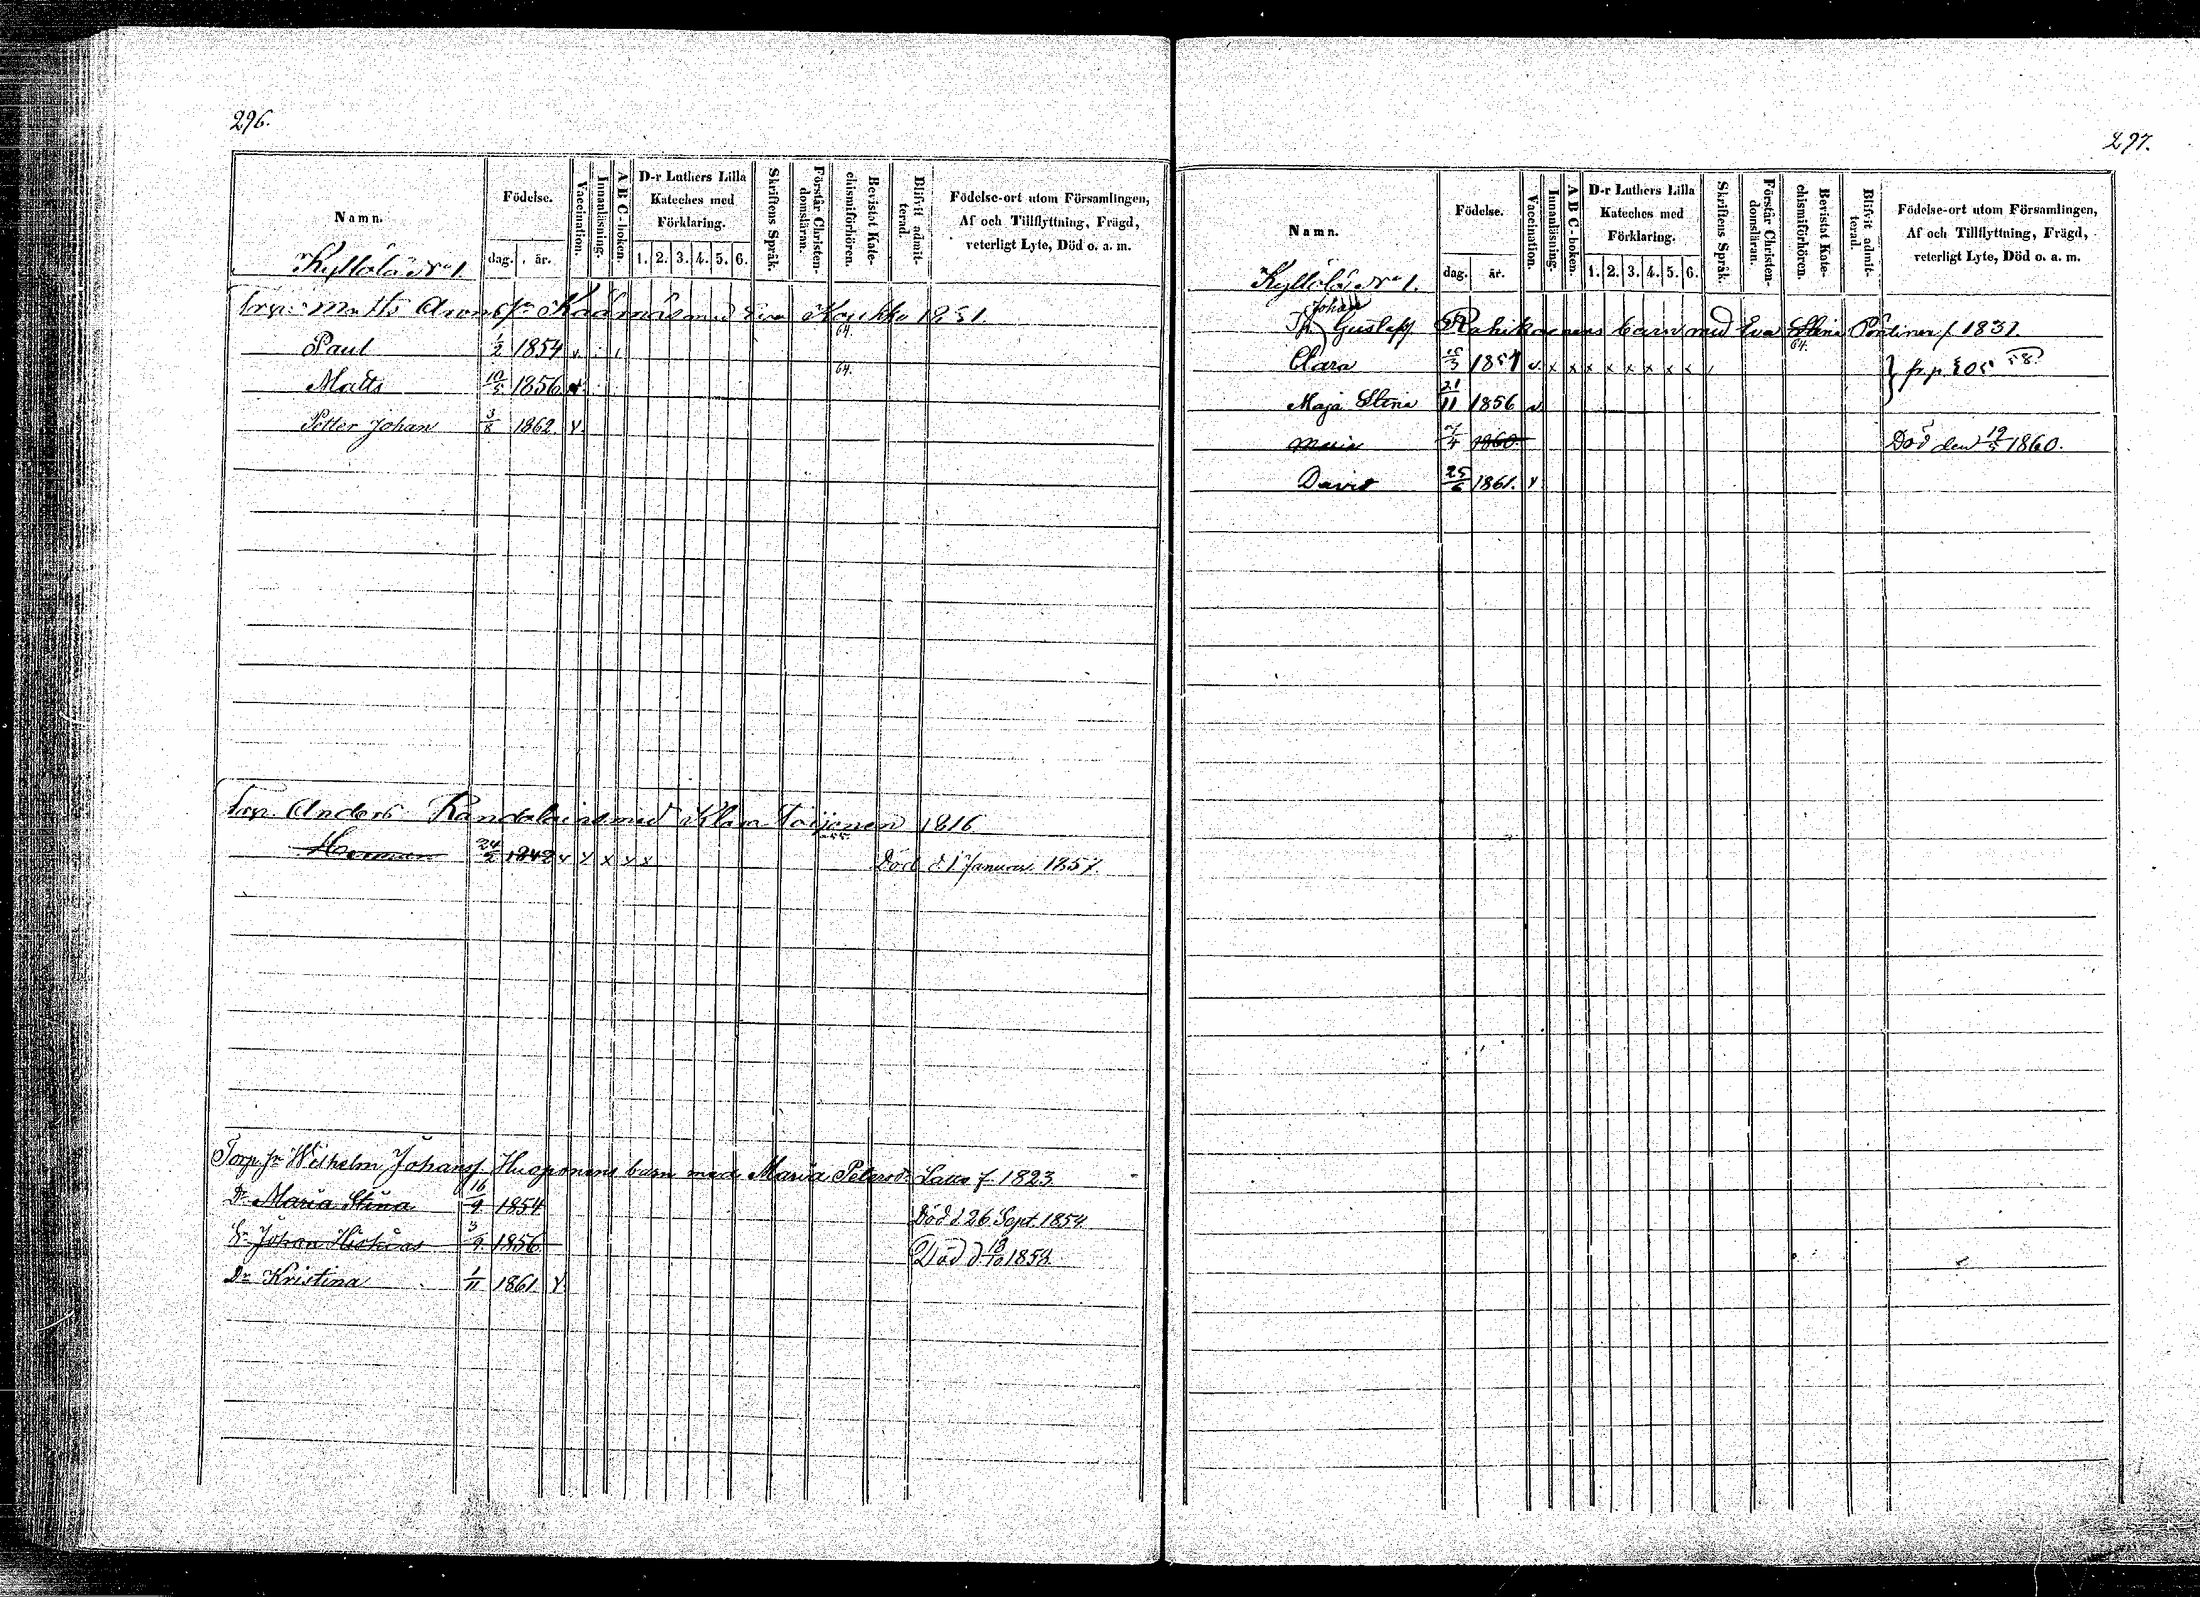 296.
Namn. Födelse. dag. år. Vaccination. Innanläsning. A B C-boken. D-r Luthers Lilla Kateches med Förklaring. 1. 2. 3. 4. 5. 6. Skriftens Språk. Förstår Christendomsläran. Bevistat Katechismiförhören. Blifvit admitterad. Födelse-ort utom Församlingen, Af och Tillflyttning, Frägd, veterligt Lyte, Död o. a. m.
Kyllölä No 1.
Torp. Matts med Eva 1831.
64.
Paul 1/2 1854 v.
64.
Matts 10/5 1856
Petter Johan 3/8 1862. v.
Torp. Anders med Klara Toijonen 1816
55.
Herman 24/2 1842 v v x v x Död d. 1 Januar. 1857.
Torp. Wilhelm Johansf. Huoponens barn med Maria Petersd. Latto f. 1823
Dr Maria Stina 16/9 1854 Död d 26 Sept. 1854.
Sn Johan 3/9 1856 Död d. 1858.
Dr Kristina 1/11 1861. v.
297.
Namn. Födelse. dag. år. Vaccination. Innanläsning. A B C-boken. D-r Luthers Lilla Kateches med Förklaring. 1. 2. 3. 4. 5. 6. Skriftens Språk. Förstår Christendomsläran. Bevistat Katechismiförhören. Blifvit admitterad. Födelse-ort utom Församlingen, Af och Tillflyttning, Frägd, veterligt Lyte, Död o. a. m.
Kyllölä No 1.
Johan
Gustaff Rahikainens barn med Eva Stina Pöntinen f. 1831.
64.
Clara 1851 v. x x x x x x x x
Maja Stina 21/11 1856 v
1860. Död den 19/5 1860.
David 25/6 1861. v